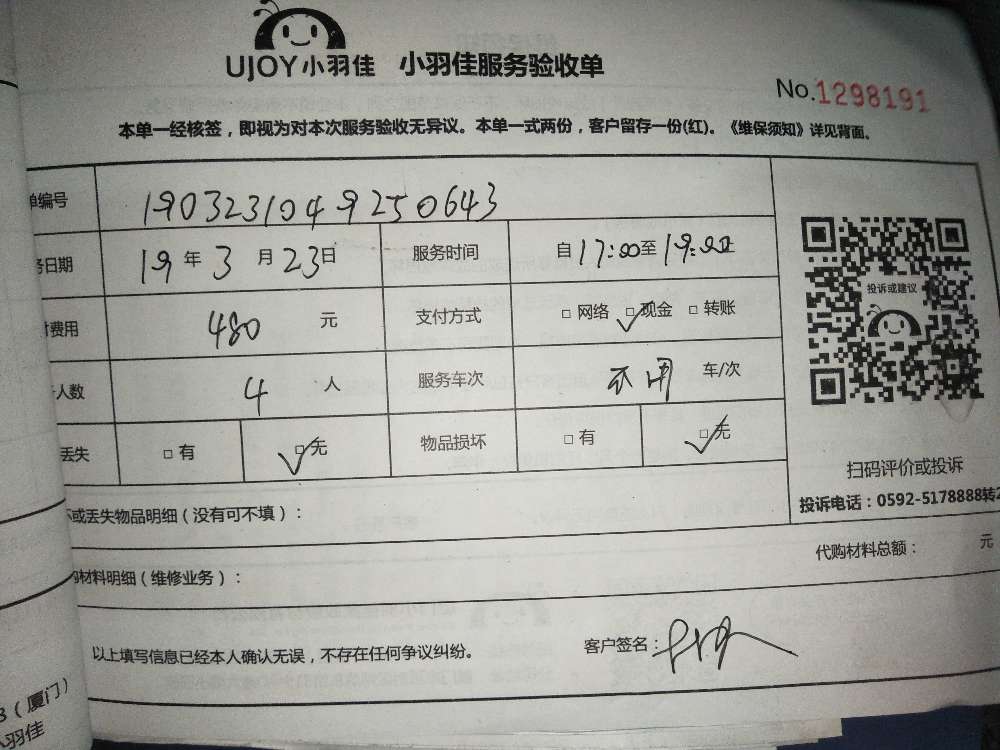 UJOY小羽佳 小羽佳服务验收单
No.1298191
本单一经核签，即视为对本次服务验收无异议。本单一式两份，客户留存一份(红)。《维保须知》详见背面。
单编号 190323104 9250643
务日期 19 年 3 月 23 日 服务时间 自 17:00 至 19:00 止
付费用 480 元 支付方式 □ 网络 □ 现金 □ 转账
人数 4 人 服务车次 不用 车/次
丢失 □ 有 □ 无 物品损坏 □ 有 □ 无
投诉或建议
扫码评价或投诉
投诉电话：0592-5178888转2
坏或丢失物品明细（没有可不填）：
购材料明细（维修业务）： 代购材料总额： 元
以上填写信息已经本人确认无误，不存在任何争议纠纷。 客户签名：
（厦门）
小羽佳